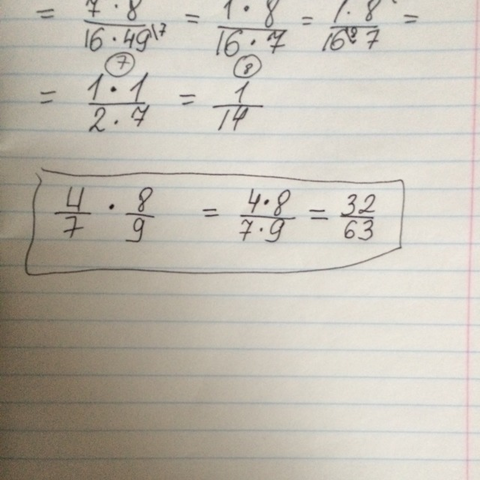 = 7·8 / 16·49\7 = 1·8 / 16·7 = 1·8 / 16 2·7 =
7 8
= 1·1 / 2·7 = 1 / 14
4 / 7 · 8 / 9 = 4·8 / 7·9 = 32 / 63